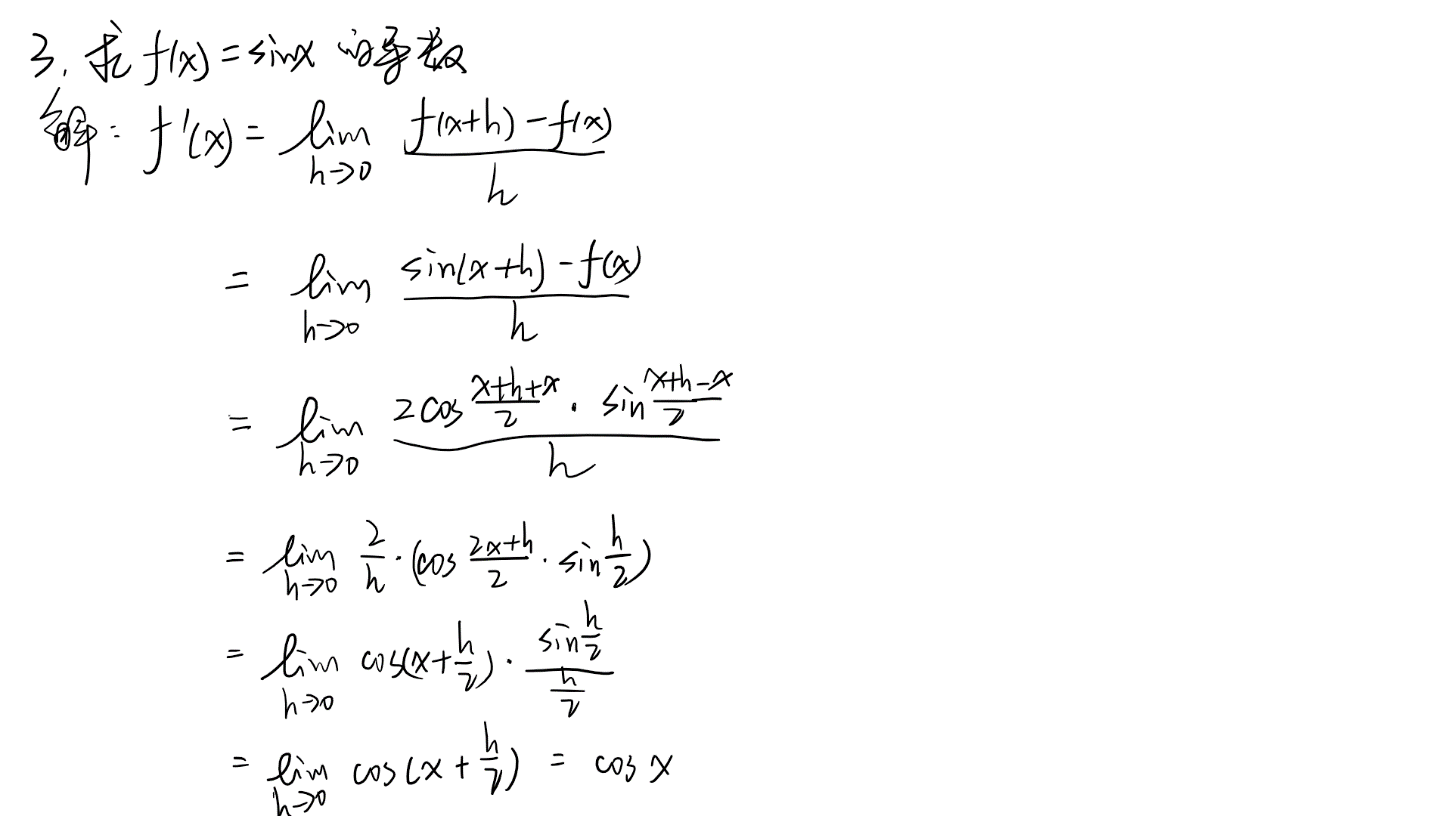 3. 求 f(x) = sinx 的导数
解: f'(x) = lim_{h→0} \frac{f(x+h) - f(x)}{h}
= lim_{h→0} \frac{sin(x+h) - f(x)}{h}
= lim_{h→0} \frac{2cos\frac{x+h+x}{2} · sin\frac{x+h-x}{2}}{h}
= lim_{h→0} \frac{2}{h} · (cos\frac{2x+h}{2} · sin\frac{h}{2})
= lim_{h→0} cos(x+\frac{h}{2}) · \frac{sin\frac{h}{2}}{\frac{h}{2}}
= lim_{h→0} cos(x+\frac{h}{2}) = cosx